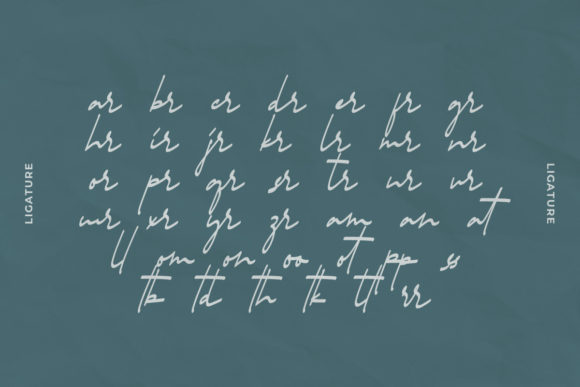 LIGATURE
ar br cr dr er fr gr
hr ir jr kr lr mr nr
or pr qr sr tr ur vr
wr xr yr zr am an at
ll om on oo ot pp ss
tb td th tk tl rr
LIGATURE